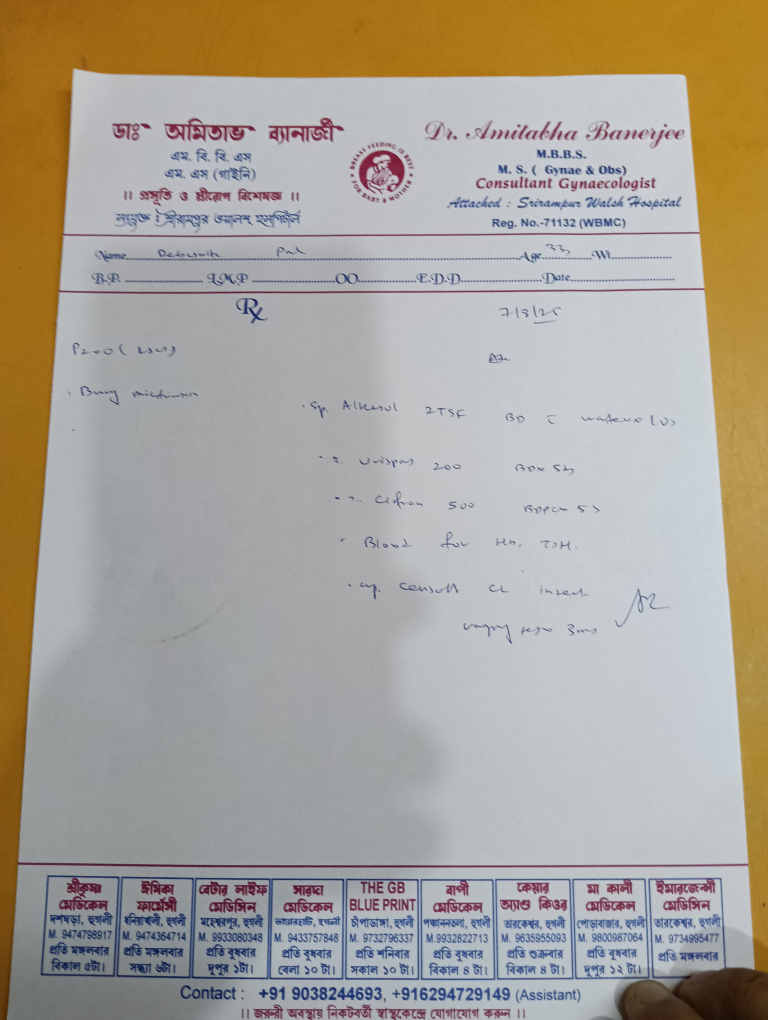 ডাঃ অমিতাভ ব্যানার্জী
এম. বি. বি. এস
এম. এস (গাইনি)
।। প্রসূতি ও স্ত্রীরোগ বিশেষজ্ঞ ।।
সংযুক্ত : শ্রীরামপুর ওয়ালশ হসপিটাল
BREAST FEEDING IS BEST
FOR BABY & MOTHER
Dr. Amitabha Banerjee
M.B.B.S.
M. S. ( Gynae & Obs)
Consultant Gynaecologist
Attached : Srirampur Walsh Hospital
Reg. No.-71132 (WBMC)
Name Pal Age 33 Wt.
B.P. L.M.P. OO E.D.D Date
Rx
7/3/25
Burning micturition
Syp. Alkasol 2TSF BD
Urispas 200
Cifran 500
Blood for Hb, TSH.
insert
শ্রীকৃষ্ণ মেডিকেল
দশঘড়া, হুগলী
M. 9474798917
প্রতি মঙ্গলবার
বিকাল ৫টা।
ঈপ্সিকা ফার্মেসী
ধনিয়াখালী, হুগলী
M. 9474364714
প্রতি মঙ্গলবার
সন্ধ্যা ৬টা।
বেটার লাইফ মেডিসিন
মহেশ্বরপুর, হুগলী
M. 9933080348
প্রতি বুধবার
দুপুর ১টা।
সারদা মেডিকেল
হুগলী
M. 9433757848
প্রতি বুধবার
বেলা ১০ টা।
THE GB BLUE PRINT
চাঁপাডাঙ্গা, হুগলী
M. 9732796337
প্রতি শনিবার
সকাল ১০ টা।
বাপী মেডিকেল
হুগলী
M. 9932822713
প্রতি বুধবার
বিকাল ৪ টা।
কেয়ার অ্যাণ্ড কিওর
তারকেশ্বর, হুগলী
M. 9635955093
প্রতি শুক্রবার
বিকাল ৪ টা।
মা কালী মেডিকেল
পোড়াবাজার, হুগলী
M. 9800987064
প্রতি বুধবার
দুপুর ১২ টা।
ইমারজেন্সী মেডিসিন
তারকেশ্বর, হুগলী
M. 9734995477
প্রতি মঙ্গলবার
Contact : +91 9038244693, +916294729149 (Assistant)
।। জরুরী অবস্থায় নিকটবর্তী স্বাস্থ্যকেন্দ্রে যোগাযোগ করুন ।।